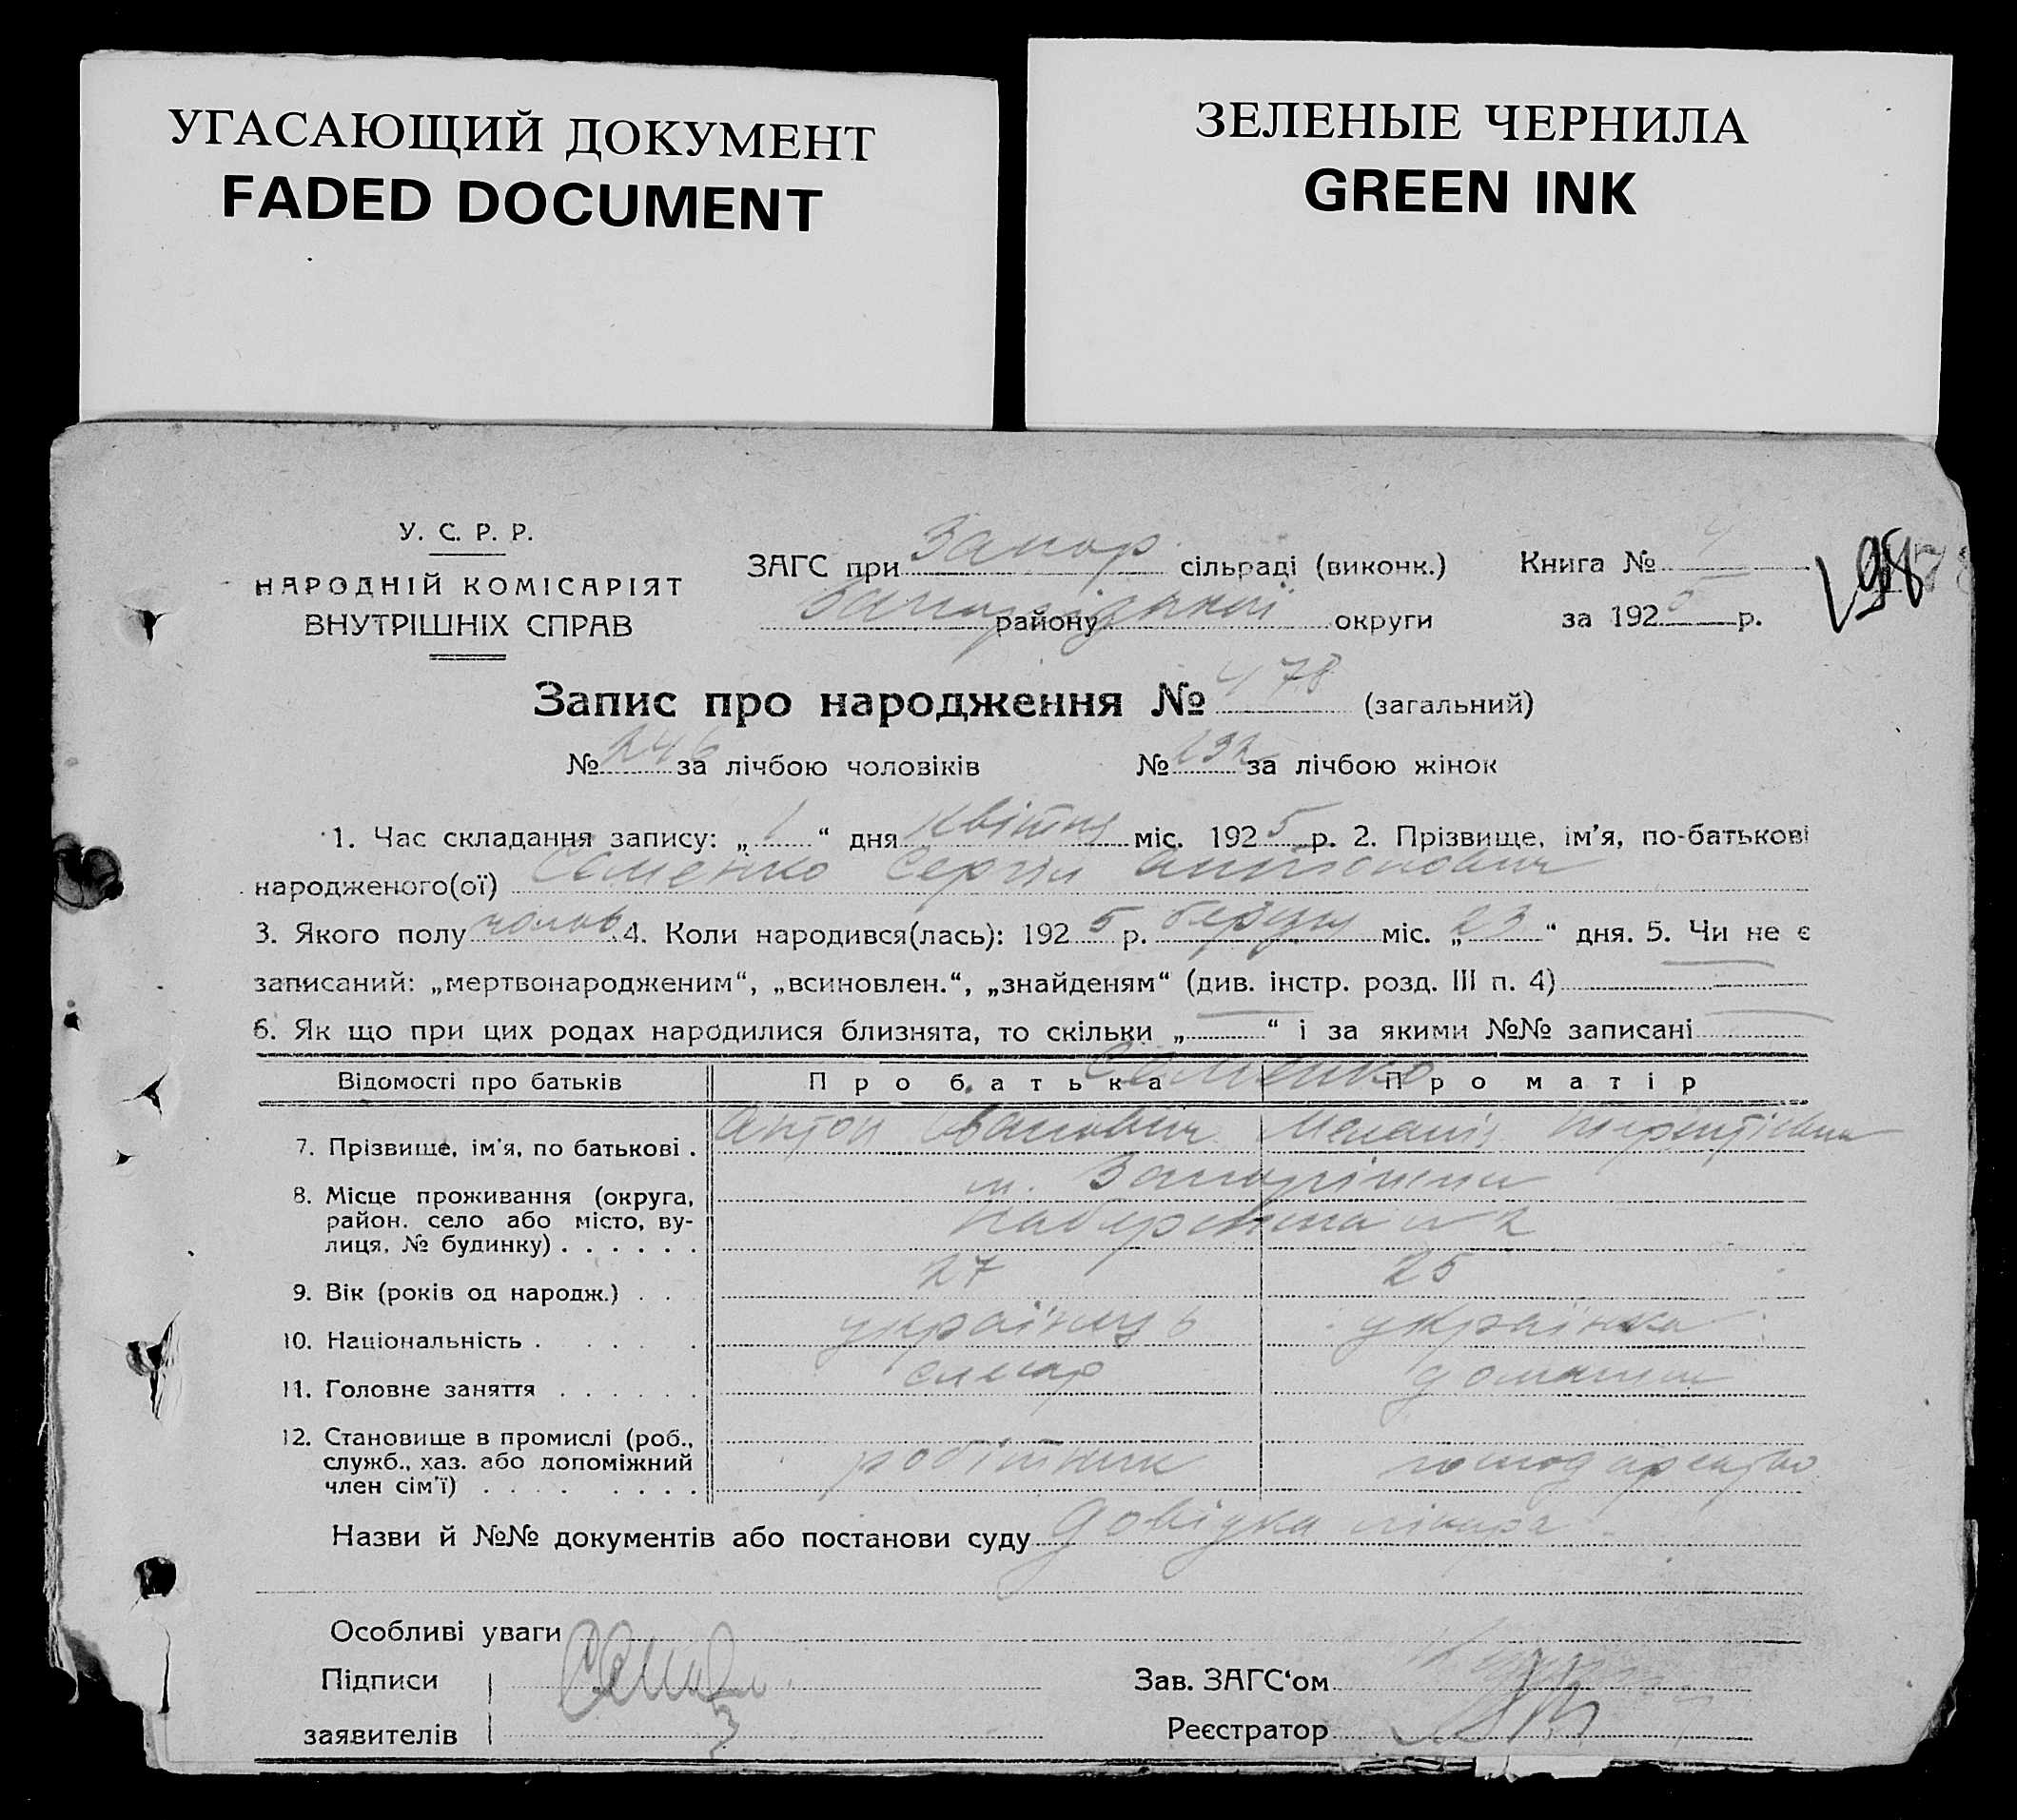 УГАСАЮЩИЙ ДОКУМЕНТ
FADED DOCUMENT
ЗЕЛЕНЫЕ ЧЕРНИЛА
GREEN INK
У. С. Р. Р.
НАРОДНІЙ КОМІСАРІЯТ
ВНУТРІШНІХ СПРАВ
ЗАГС при Запор. сільраді (виконк.)
району Запорізької округи
Книга № 4
за 1925 р.
98
Запис про народження № 478 (загальний)
№ 246 за лічбою чоловіків № 232 за лічбою жінок
1. Час складання запису: „1“ дня квітня міс. 1925 р. 2. Прізвище, ім'я, по-батькові
народженого(ої) Семенко Сергій Антонович
3. Якого полу чолов. 4. Коли народився(лась): 1925 р. березня міс. „23“ дня. 5. Чи не є
записаний: „мертвонародженим“, „всиновлен.“, „знайденям“ (див. інстр. розд. III п. 4)
6. Як що при цих родах народилися близнята, то скільки „—“ і за якими №№ записані —
Відомості про батьків Про батька Про матір
Семенко
7. Прізвище, ім'я, по батькові . Антон Іванович Меланія Терентіївна
8. Місце проживання (округа, район. село або місто, вулиця, № будинку) . . . . . .
м. Запоріжжя
Набережна № 2
9. Вік (років од народж.) . . 27 25
10. Національність . . . . . українець українка
11. Головне заняття . . . . . . слюсар домашнє
12. Становище в промислі (роб., служб., хаз. або допоміжний член сім'ї) . . . . . . . .
робітник господарство
Назви й №№ документів або постанови суду Довідка лікаря
Особливі уваги
Підписи
заявителів
Зав. ЗАГС'ом
Реєстратор